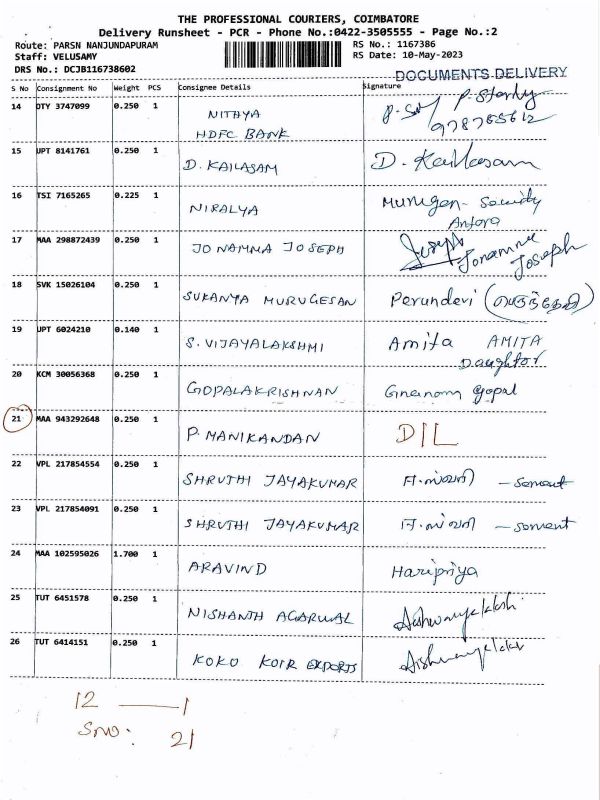 THE PROFESSIONAL COURIERS, COIMBATORE
Delivery Runsheet - PCR - Phone No.:0422-3505555 - Page No.:2
Route: PARSN NANJUNDAPURAM RS No.: 1167386
Staff: VELUSAMY RS Date: 10-May-2023
DRS No.: DCJB116738602
DOCUMENTS DELIVERY
S No Consignment No Weight PCS Consignee Details Signature
14 DTY 3747099 0.250 1 NITHYA
HDFC BANK
15 UPT 8141761 0.250 1 D. KAILASAM D. Kaillasam
16 TSI 7165265 0.225 1 NIRALYA Murugan - Security
Antora
17 MAA 298872439 0.250 1 JONAMMA JOSEPH Joseph Jonamma
Joseph
18 SVK 15026104 0.250 1 SUKANYA MURUGESAN Perundevi (பெருந்தேவி)
19 UPT 6024210 0.140 1 S. VIJAYALAKSHMI Amita AMITA
Daughtor
20 KCM 30056368 0.250 1 GOPALAKRISHNAN Gnanam gopal
21 MAA 943292648 0.250 1 P. MANIKANDAN DIL
22 VPL 217854554 0.250 1 SHRUTHI JAYAKUMAR
23 VPL 217854091 0.250 1 SHRUTHI JAYAKUMAR
24 MAA 102595026 1.700 1 ARAVIND Haripriya
25 TUT 6451578 0.250 1 NISHANTH AGARWAL
26 TUT 6414151 0.250 1 KOKO KOIR EXPORTS
12 — 1
SNO: 21